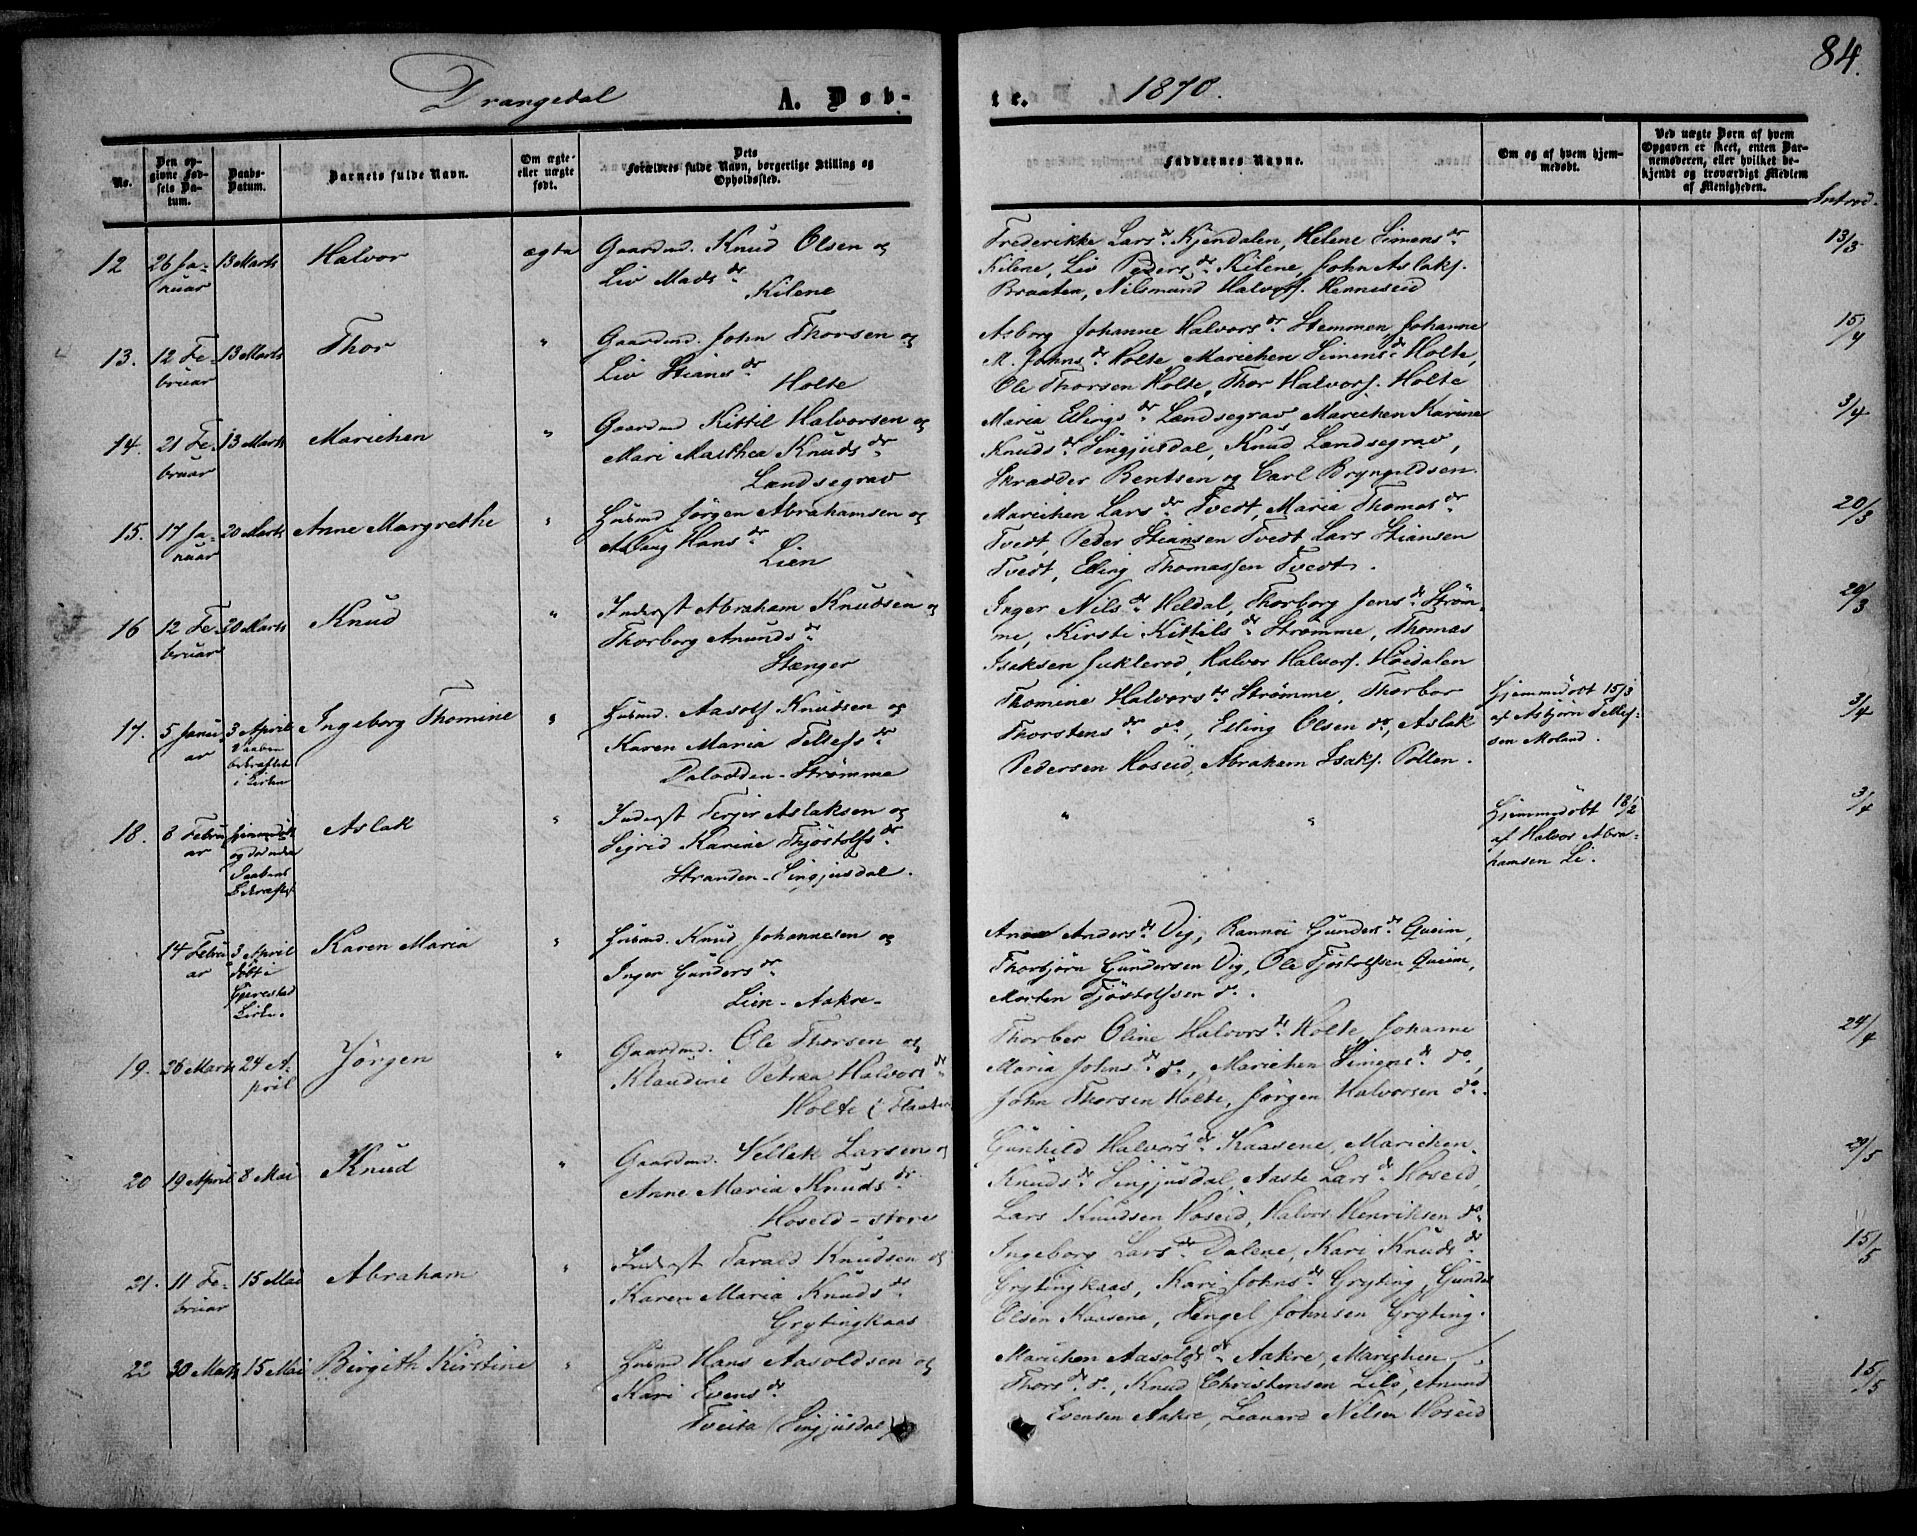 Drangedal A. Døb-
te. 1870. 84.
No.
Den opgivne Fødsels Datum.
Daabs-Datum.
Barnets fulde Navn.
Om ægte- eller uægte født.
Dets Forældres fulde Navn, borgerlige Stilling og Opholdssted.
Faddernes Navne.
Om og af hvem hjemmedøbt.
Ved uægte Børn af hvem Opgaven er skeet, enten Barnemoderen, eller hvilket bekjendt og troværdigt Medlem af Menigheden.
Introd.
12 26 Ja- 13 Marts Halvor ægte Gaardmd. Knud Olsen og
nuar Liv Madsdr
Kilene
Frederikke Larsdr Kjendalen, Helene Simensdr
Kilene, Liv Pedersdr Kilene, John Aslaks.
Braaten, Nilsmund Halvors. Henneseid
13/3
13. 12 Fe- 13 Marts Thor " Gaardmd. John Thorsen og
bruar Liv Stiansdr
Holte
Asborg Johanne Halvorsdr Stemmen, Johanne
M. Johnsdr Holte, Marichen Simensdr Holte,
Ole Thorsen Holte, Thor Halvors. Holte
15/4
14. 21 Fe- 13 Marts Marichen " Gaardmd Kittil Halvorsen og
bruar Mari Marthea Knudsdr
Landsegrav
Maria Ellingsdr Landsegrav, Marichen Karine
Knudsdr Singjusdal, Knud Landsegrav,
Skrædder Bentsen og Carl Bryngildsen.
3/4
15. 17 Ja- 20 Marts Anne Margrethe " Husmd Jörgen Abrahamsen og
nuar Aslaug Hansdr
Lien
Marichen Larsdr Tvedt, Maria Thomasdr
Tvedt, Peder Stiansen Tvedt Lars Stiansen
Tvedt, Elling Thomassen Tvedt.
20/3
16 12 Fe- 20 Marts Knud " Inderst Abraham Knudsen og
bruar Thorborg Anundsdr
Stænger
Inger Nilsdr Heldal, Thorborg Jensdr Strøm-
me, Kirsti Kittilsdr Strømme, Thomas
Isaksen Juklerød, Halvor Halvors. Høidalen
20/3
17. 5 Janu- 3 April Ingeborg Thomine " Husmd. Aasolf Knudsen og
ar Daaben bekræftet i Kirken Karen Maria Tellefsdr
Dalodden-Strømme
Thomine Halvorsdr Strømme, Thorbor
Thorstensdr do, Elling Olsen do, Aslak
Pedersen Hoseid, Abraham Isaks. Pollen.
Hjemmedøbt 15/3
af Asbjørn Tellef-
sen Moland.
3/4
18. 8 Febru- Hjemmedøbt Aslak " Inderst Terjer Aslaksen og
ar Sigrid Karine Thjøstolfsdr
Stranden-Singjusdal.
" "
Hjemmedøbt 18/2
af Halvor Abra-
hamsen Li.
3/4
14 Febru- 3 April Karen Maria " Husmd. Knud Johannesen og
ar døbt i Gjerrestad Kirke. Inger Gundersdr
Lien-Aakre-
Anne Andersdr Vig, Rannei Gundersdr Queim,
Thorbjörn Gundersen Vig, Ole Tjöstolfsen Queim,
Morten Tjöstolfsen do.
19. 26 Marts 24 A- Jörgen " Gaardmd. Ole Thorsen og
pril Klaudine Petrea Halvorsdr
Holte
Thorber Oline Halvorsdr Holte, Johanne
Maria Johnsdr do, Marichen Simensdr do,
John Thorsen Holte, Jörgen Halvorsen do.
24/4
20 19 April 8 Mai Knud " Gaardmd. Kellak Larsen og
Anne Maria Knudsdr
Hoseid-store
Gunhild Halvorsdr Kaasene, Marichen
Knudsdr Singjusdal, Aaste Larsdr Hoseid,
Lars Knudsen Hoseid, Halvor Henriksen do.
29/5
21. 11 Fe- 15 Mai Abraham " Inderst Tarald Knudsen og
bruar Karen Maria Knudsdr
Grytingkaas
Ingeborg Larsdr Dalene, Kari Knudsdr
Grytingkaas, Kari Johnsdr Gryting, Gunder
Olsen Kaasene, Tengel Johnsen Gryting.
15/5
22 30 Marts 15 Mai Birgith Kirstine " Husmd Hans Aasoldsen og
Kari Evensdr
Tveita (Singjusdal)
Marichen Aasoldsdr Aakre, Marichen
Thorsdr do, Knud Christensen Lilö, Anund
Evensen Aakre, Leonard Nilsen Hoseid
15/5